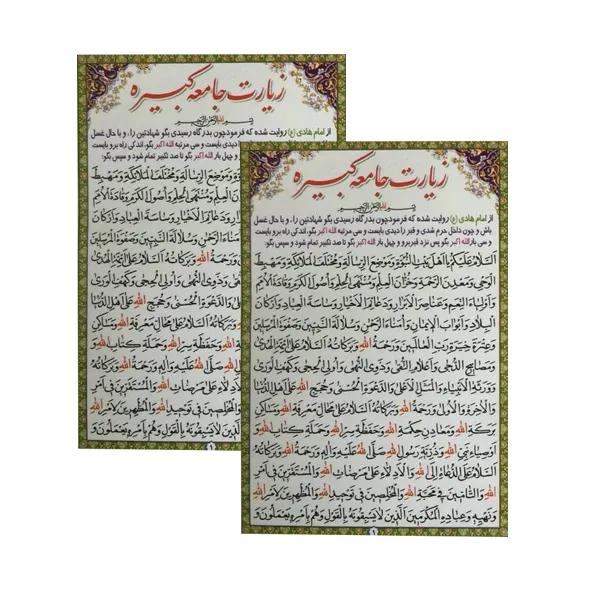 زیارت جامعه کبیره
بسم الله الرحمن الرحیم
از امام هادی (ع) روایت شده که فرمود چون بدرگاه رسیدی بگو شهادتین را، و با حال غسل
زیارت جامعه کبیره
بسم الله الرحمن الرحیم
از امام هادی (ع) روایت شده که فرمود چون بدرگاه رسیدی بگو شهادتین را، و با حال غسل
باش و چون داخل حرم شدی و قبر را دیدی بایست و سی مرتبه الله اکبر بگو، اندکی راه برو بایست
و سی بار الله اکبر بگو پس نزد قبر برو و چهل بار الله اکبر بگو تا صد تکبیر تمام شود و سپس بگو:
اَلسَّلامُ عَلَيْكُمْ يا اَهْلَ بَيْتِ النُّبُوَّةِ وَمَوْضِعَ الرِّسالَةِ وَمُخْتَلَفَ الْمَلائِكَةِ وَمَهْبِطَ
الْوَحْيِ وَمَعْدِنَ الرَّحْمَةِ وَخُزّانَ الْعِلْمِ وَمُنْتَهَى الْحِلْمِ وَاُصُولَ الْكَرَمِ وَقادَةَ الْاُمَمِ
وَاَوْلِياءَ النِّعَمِ وَعَناصِرَ الْاَبْرارِ وَدَعائِمَ الْاَخْيارِ وَساسَةَ الْعِبادِ وَاَرْكانَ
الْبِلادِ وَاَبْوابَ الْايمانِ وَاُمَناءَ الرَّحْمنِ وَسُلالَةَ النَّبِيّينَ وَصَفْوَةَ الْمُرْسَلينَ
وَعِتْرَةَ خِيَرَةِ رَبِّ الْعالَمينَ وَرَحْمَةُ اللهِ وَبَرَكاتُهُ اَلسَّلامُ عَلى اَئِمَّةِ الْهُدى
وَمَصابيحِ الدُّجى وَاَعْلامِ التُّقى وَذَوِى النُّهى وَاُولِى الْحِجى وَكَهْفِ الْوَرى
وَوَرَثَةِ الْاَنْبِياءِ وَالْمَثَلِ الْاَعْلى وَالدَّعْوَةِ الْحُسْنى وَحُجَجِ اللهِ عَلى اَهْلِ الدُّنْيا
وَالْاخِرَةِ وَالْاُولى وَرَحْمَةُ اللهِ وَبَرَكاتُهُ اَلسَّلامُ عَلى مَحالِّ مَعْرِفَةِ اللهِ وَمَساكِنِ
بَرَكَةِ اللهِ وَمَعادِنِ حِكْمَةِ اللهِ وَحَفَظَةِ سِرِّ اللهِ وَحَمَلَةِ كِتابِ اللهِ وَ
اَوْصِياءِ نَبِىِّ اللهِ وَذُرِّيَّةِ رَسُولِ اللهِ صَلَّى اللهُ عَلَيْهِ وَالِهِ وَرَحْمَةُ اللهِ وَبَرَكاتُهُ
اَلسَّلامُ عَلَى الدُّعاةِ اِلَى اللهِ وَالْاَدِلّاءِ عَلى مَرْضاتِ اللهِ وَالْمُسْتَقِرّينَ فى اَمْرِ
اللهِ وَالتّامّينَ فى مَحَبَّةِ اللهِ وَالْمُخْلِصينَ فى تَوْحيدِ اللهِ وَالْمُظْهِرينَ لِاَمْرِ اللهِ
وَنَهْيِهِ وَعِبادِهِ الْمُكْرَمينَ الَّذينَ لا يَسْبِقُونَهُ بِالْقَوْلِ وَهُمْ بِاَمْرِهِ يَعْمَلُونَ وَ
١